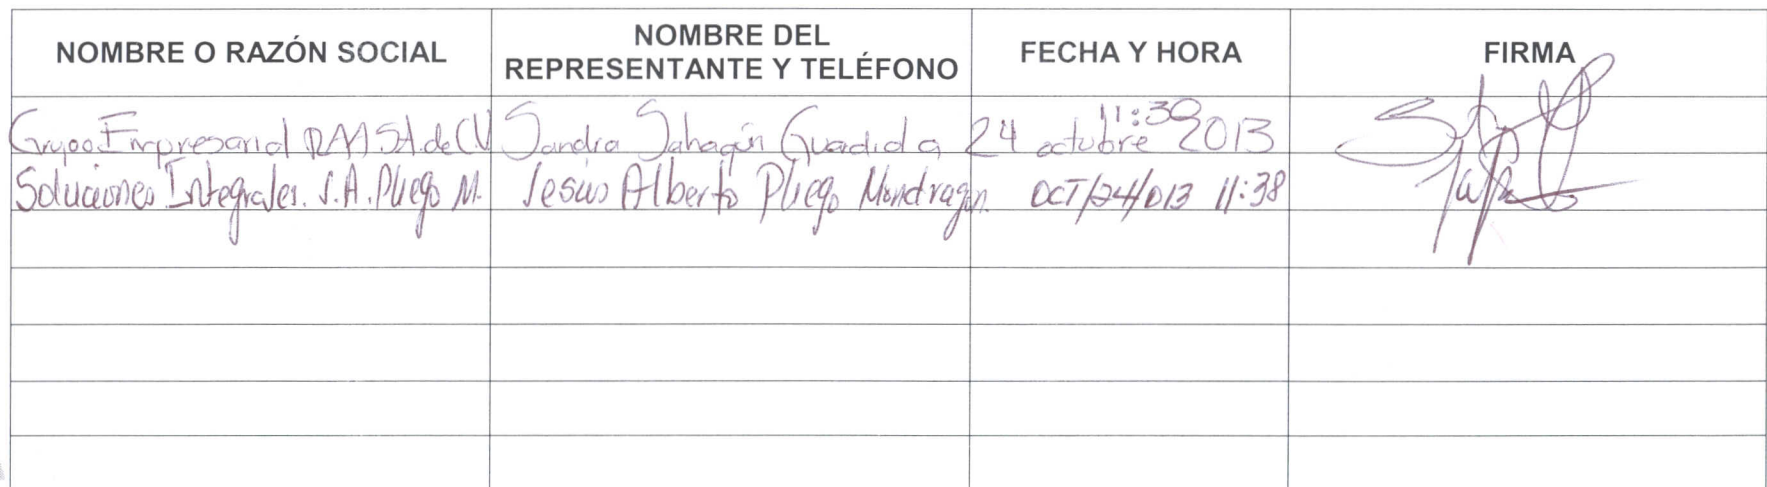 NOMBRE O RAZÓN SOCIAL NOMBRE DEL REPRESENTANTE Y TELÉFONO FECHA Y HORA FIRMA
Grupo Empresarial RAM SA. de CV Sandra Sahagún Guadiola 24 octubre 2013 11:30
Soluciones Integrales. J.A. Pliego M. Jesus Alberto Pliego Mondragon. OCT/24/013 11:38